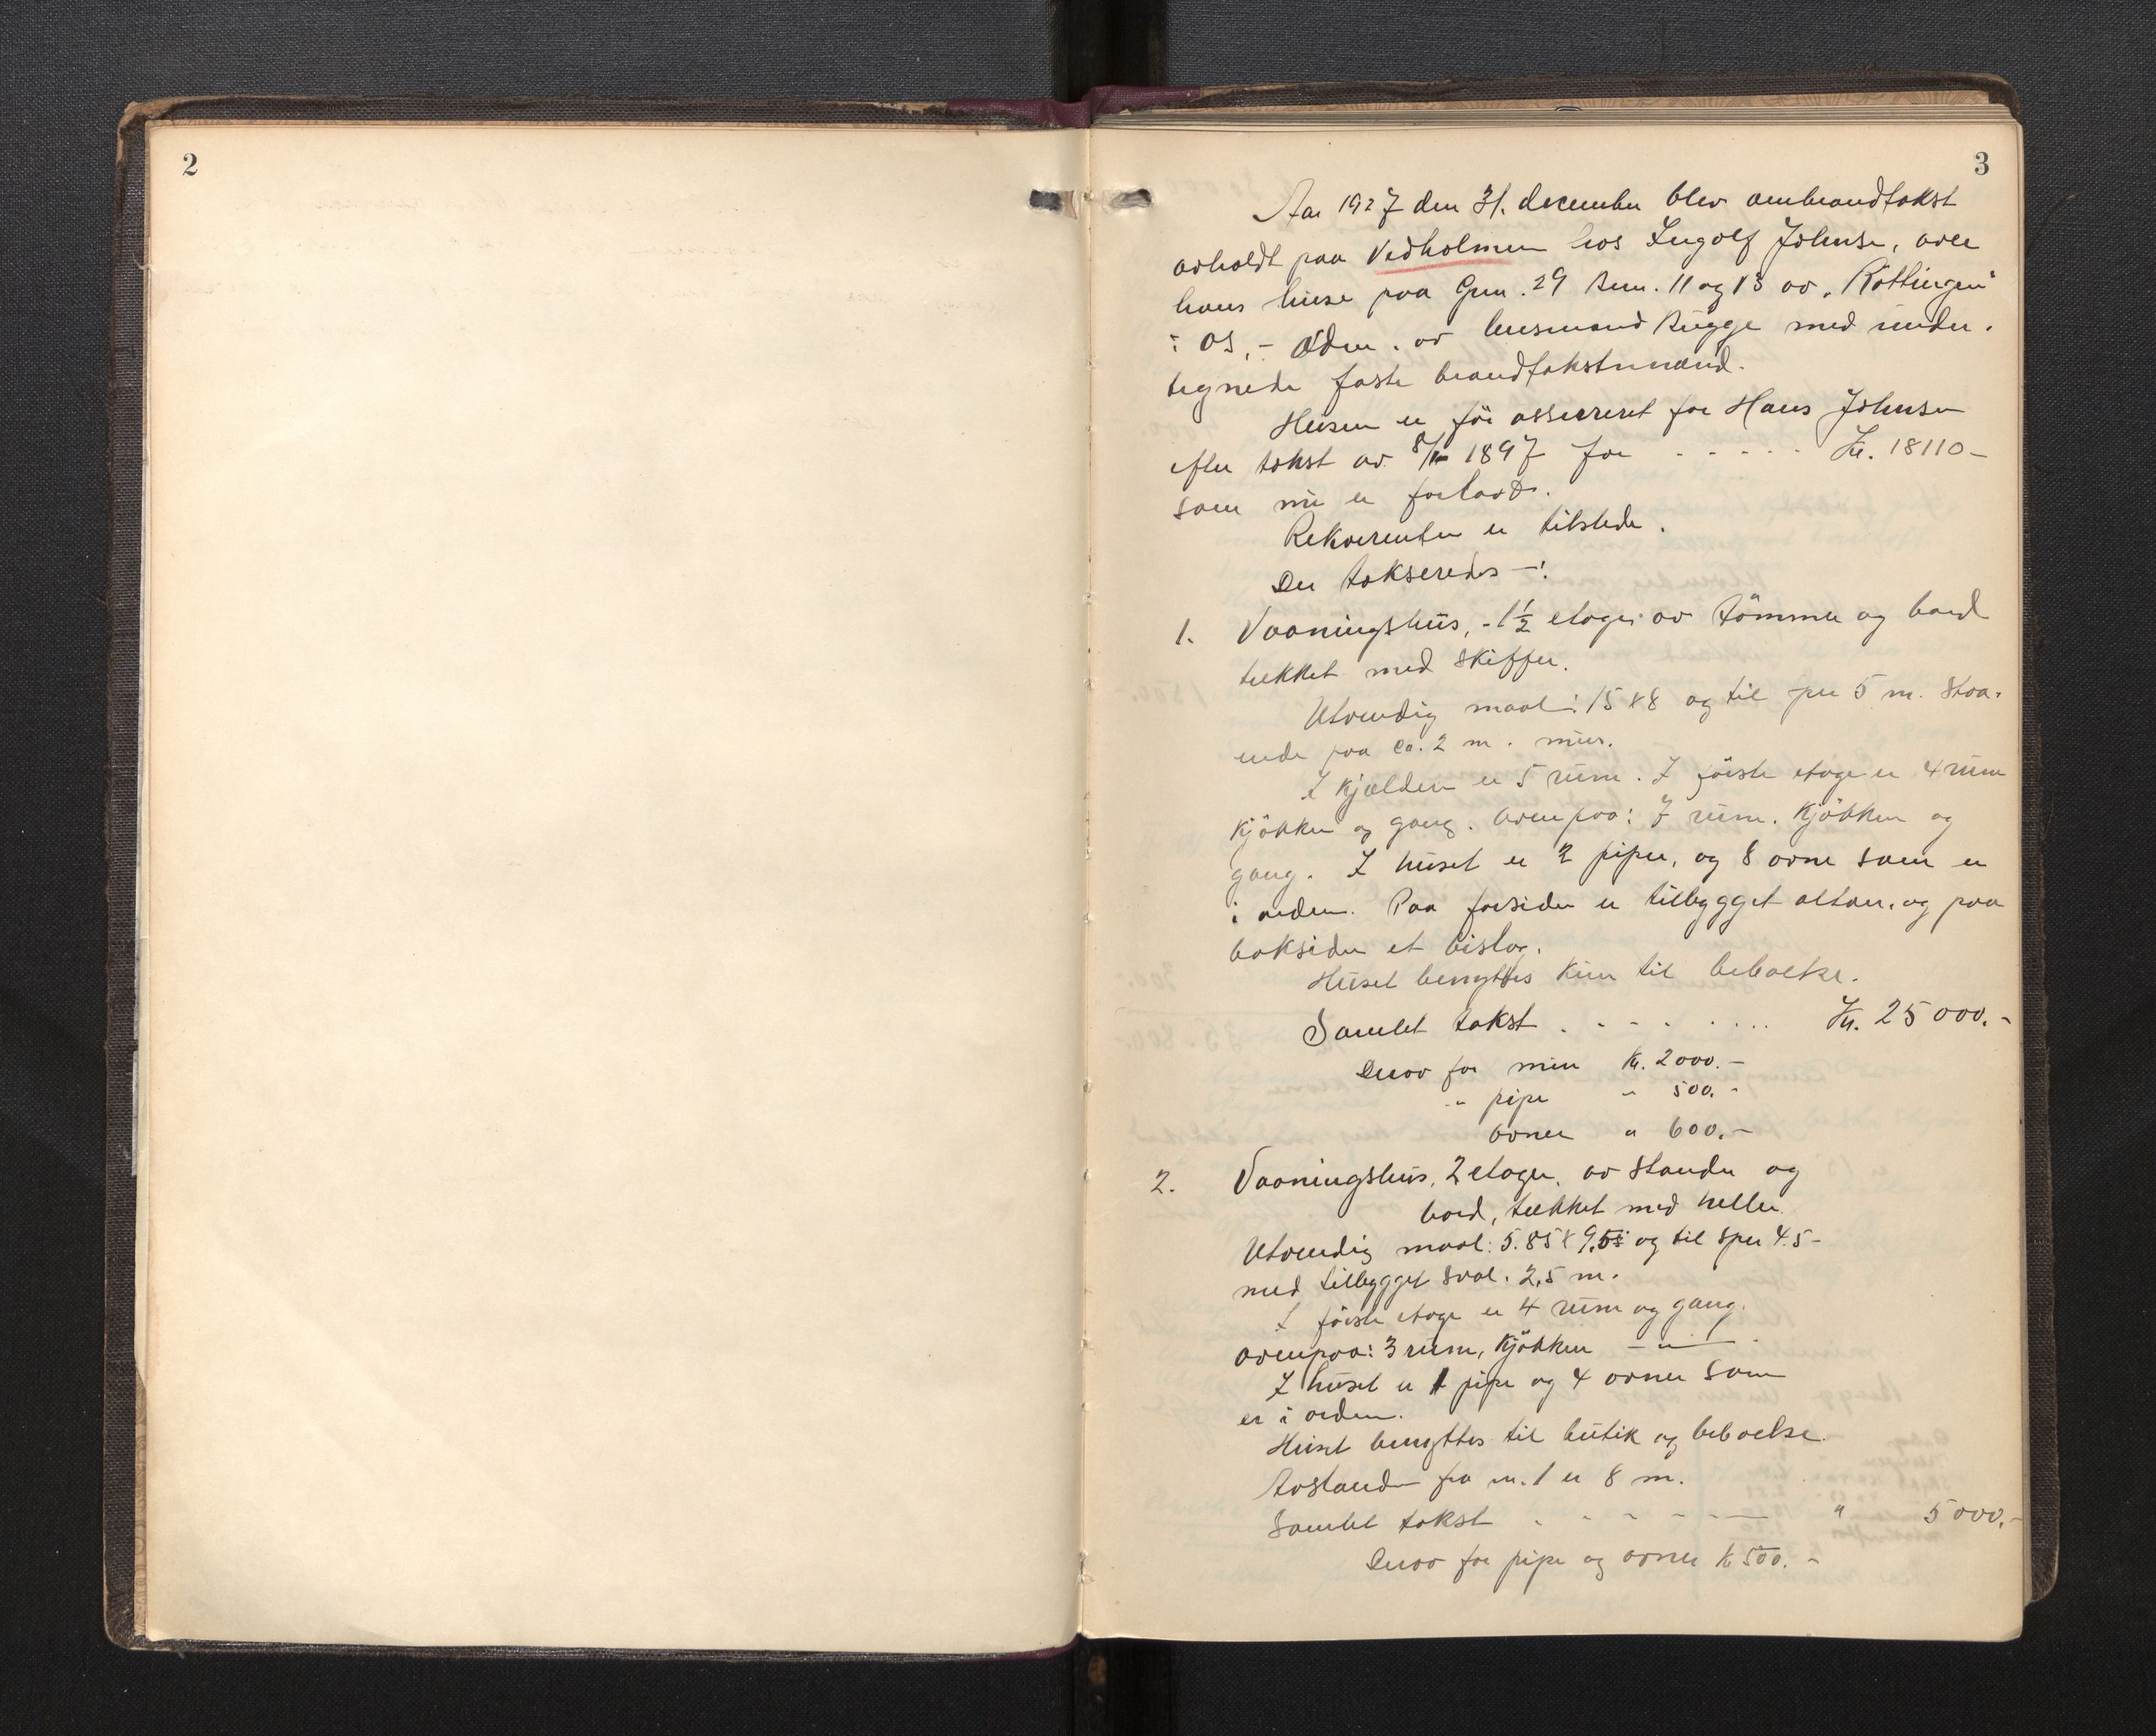 2
3
Aar 1927 den 31. december blev ombrandtakst
avholdt paa Vedholmen hos Ingolf Johnsen, over
hans huse paa Gnr. 29 Bnr. 11 og 13 av "Röttingen"
i Os, - av lensmand Rugge med under-
tegnede faste brandtakstmænd.
Husene er för assureret for Hans Johnsen
efter takst av 1897 for - - - - - Kr. 18110-
som nu er forlavt.
Rekvirenten er tilstede.
Der takseredes -:
1. Vaaningshus, - 1½ etager av tömmer og bord
tækket med skiffer.
Utvendig maal: 15 x 8 og til spær 5 m. staa-
ende paa ca. 2 m. mur.
I kjælderen er 5 rum. I förste etage er 4 rum
kjökken og gang. Ovenpaa: 7 rum. Kjökken og
gang. I huset er 2 piper, og 8 ovne som er
i orden. Paa forsiden er tilbygget altan, og paa
baksiden et bislag.
Huset benyttes kun til beboelse.
Samlet takst . . - - . . . . . Kr. 25000.-
Derav for mur Kr. 2000.-
" pipe " 500.-
ovner " 600.-
2. Vaaningshus, 2 etager, av stender og
bord, tækket med heller.
Utvendig maal: 5.85 x og til spær 4.5-
med tilbygget sval. 2,5 m.
I förste etage er 4 rum og gang.
Ovenpaa: 3 rum, kjökken - " - .
I huset er 1 pipe og 4 ovner som
er i orden.
Huset benyttes til butik og beboelse.
Avstanden fra nr. 1 er 8 m.
Samlet takst - - - - - - - " 5000.-
Derav for pipe og ovner Kr 500.-